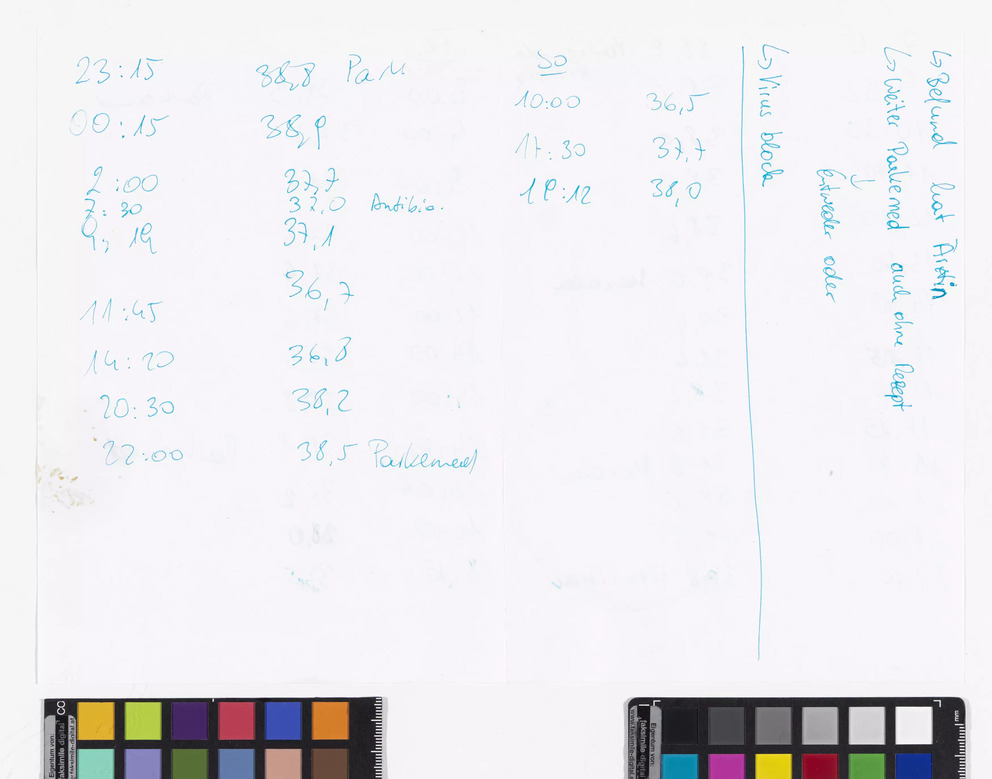 23:15 38,8
00:15 38,9
2:00 37,7
7:30 37,0 Antibio.
9:19 37,1
36,7
11:45
14:20 36,8
20:30 38,2
22:00 38,5 Parkemed
SO
10:00 36,5
17:30 37,7
19:12 38,0
↳ Befund hat Ärztin
↳ Weiter Parkemed auch ohne Rezept
↓
Entweder oder
↳ Virus block
CC
Eigentum von:
faksimile digital
mm